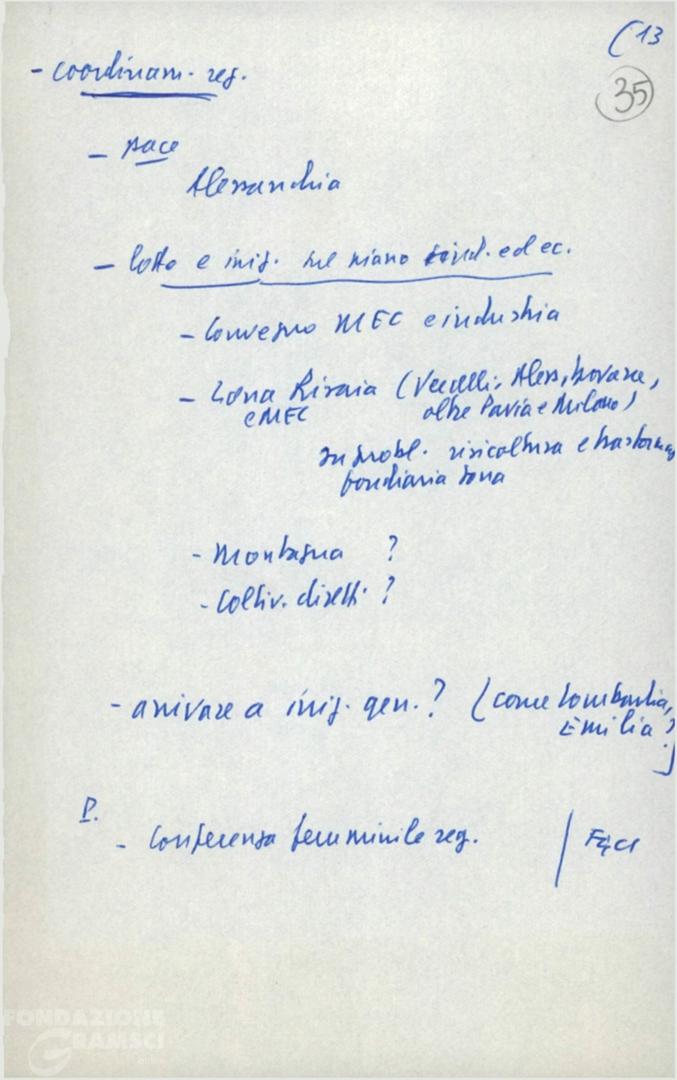 (13
35
- coordinam. reg.
- pace
Alessandria
- lotte e iniz. sul piano sind. ed ec.
- Convegno MEC e industria
- Zona Risaia (Vercelli, Aless, Novara,
e MEC oltre Pavia e Milano)
su probl. risicoltura e trasformaz
fondiaria zona
- Montagna ?
- Coltiv. diretti ?
- arrivare a iniz. gen. ? (come Lombardia,
Emilia ?)
P.
- Conferenza femminile reg. | FGCI
FONDAZIONE
GRAMSCI